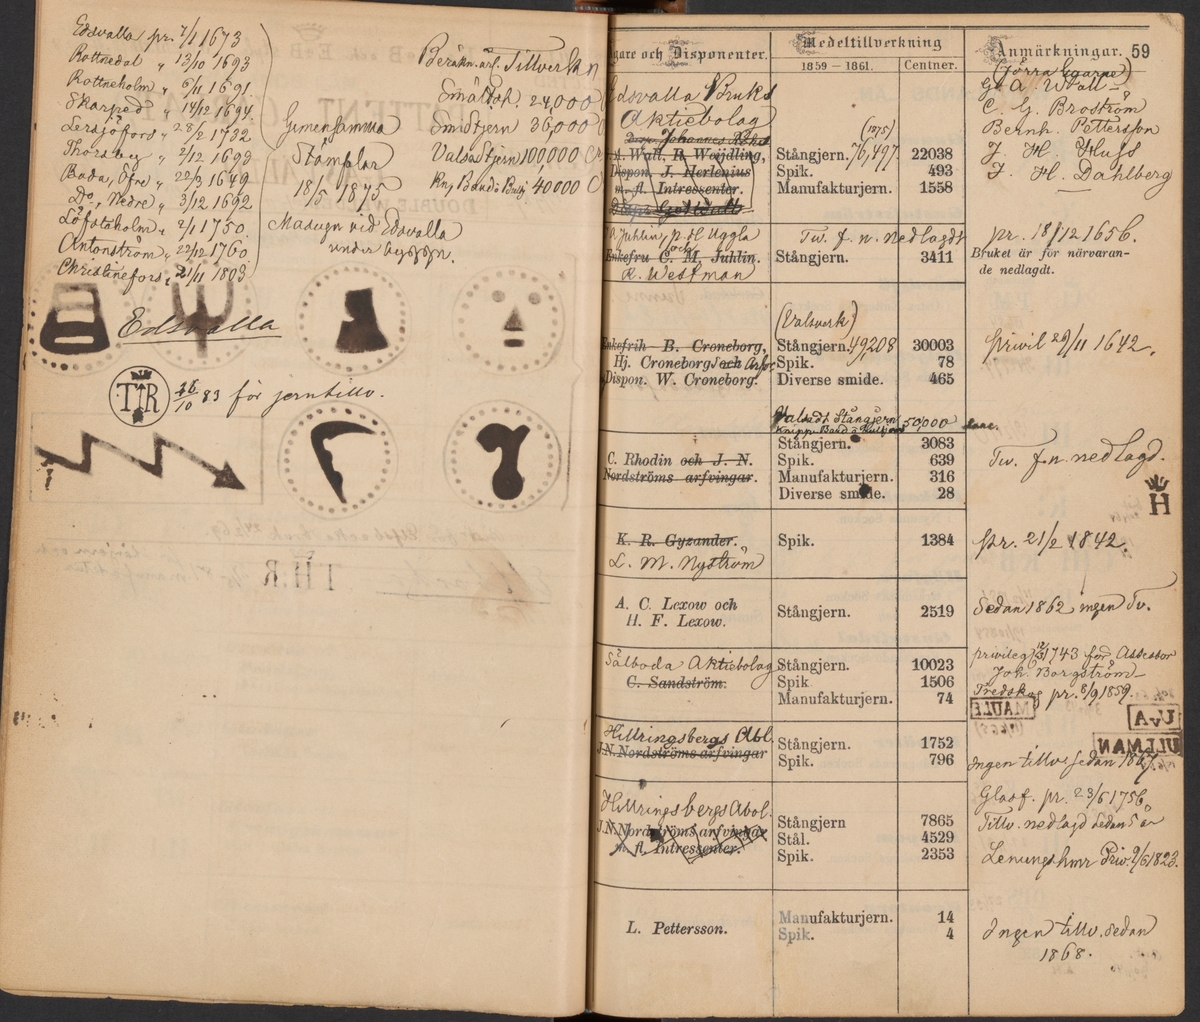 Edsvalla pr. 7/1 1673
Rottnedal " 13/10 1693
Rottneholm " 6/11 1691
Skarped " 14/12 1694
Lersjöfors " 28/2 1732
Thorsby " 2/12 1693
Bada, Öfre " 22/3 1649
Do, Nedre " 3/12 1692
Löfstaholm " 2/1 1750.
Antonström " 22/12 1760
Christinefors " 21/11 1803
Gemensamma
Stämplar
18/5 1875
Masugn vid Edsvalla
under byggn.
Beräkn. arl. Tillverkn
Smältst. 24,000
Smidtjern 36,000
Valsadtjern 100,000
40,000
Edsvalla
TR 16/10 83 för jerntillv.
TH.R
Ägare och Disponenter.
Medeltillverkning
1859 — 1861.
Centner.
Anmärkningar. 59
(förra egarne)
Edsvalla Bruks
Aktiebolag
Disp. Johannes
Wall, R. Weijdling,
Dispon. J. Herlenius
m. fl. Intressenter.
(1875)
Stångjern. 76,497. 22038
Spik. 493
Manufakturjern. 1558
G. A. Wall
C. G. Broström
Bernh. Pettersson
J. H. Huss
J. H. Dahlberg
Juhlin, p. H. Uggla
och
Enkefru C. M. Juhlin.
R. Westman
Tw. f. n. nedlagdt
Stångjern. 3411
pr. 18/12 1656.
Bruket är för närvaran-
de nedlagdt.
(Valsverk)
Enkefrih. B. Croneborg,
Hj. Croneborg och
Dispon. W. Croneborg.
Stångjern. 49,208 30003
Spik. 78
Diverse smide. 465
privil 29/11 1642.
Valsadt Stångjern 50,000
C. Rhodin och J. N.
Nordströms arfvingar.
Stångjern. 3083
Spik. 639
Manufakturjern. 316
Diverse smide. 28
Tw. f.n. nedlagd.
H
K. R. Gyzander.
L. M. Nyström
Spik. 1384
pr. 21/2 1842.
A. C. Lexow och
H. F. Lexow.
Stångjern. 2519
Sedan 1862 ingen Tv.
Sälboda Aktiebolag
C. Sandström.
Stångjern. 10023
Spik 1506
Manufakturjern. 74
1743 för Assessor
Joh. Borgström
pr. 8/9 1859.
MAULE
UvA
ULLMAN
Hillringsbergs Abl.
J. N. Nordströms arfvingar
Stångjern. 1752
Spik. 796
Ingen tillv sedan 1867.
Hillringsbergs Abol.
J. N. Nordströms arfvingar
m. fl. Intressenter.
Stångjern 7865
Stål. 4529
Spik. 2353
Glasf. pr. 23/6 1756
Tillv. nedlagd sedan 5 år
Priv. 9/6 1823.
L. Pettersson.
Manufakturjern. 14
Spik. 4
Ingen tillv. sedan
1868.